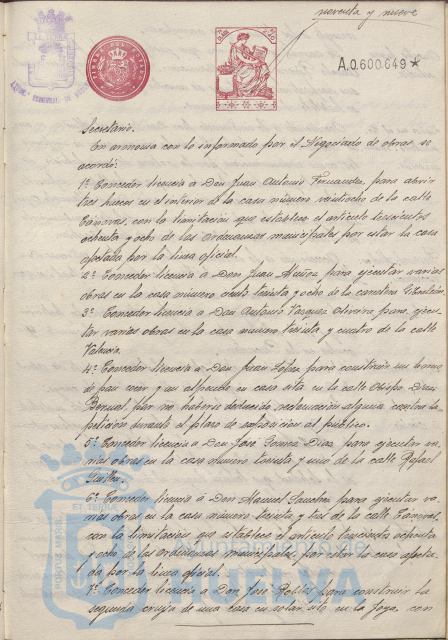 noventa y nueve
A.0.600.649*
Secretario.
En armonia con lo informado por el Negociado de obras se
acordó:
1º Conceder licencia á Don Juan Antonio Fernandez, para abrir
tres huecos en el interior de la casa número veintiocho de la calle
Cánovas, con la limitación que establece el artículo trescientos
ochenta y ocho de las Ordenanzas municipales por estar la casa
afectada por la línea oficial.
2º Conceder licencia á Don Juan Muñoz para ejecutar varias
obras en la casa número ciento treinta y ocho de la carretera Gibraleón.
3º Conceder licencia á Don Antonio Vazquez Oliveira para ejecu-
tar varias obras en la casa número treinta y cuatro de la calle
Valencia.
4º Conceder licencia á Don Juan López para construir un horno
de pan cocer y un expendio en casa sita en la calle Obispo Diaz
Bernal, por no haberse deducido reclamación alguna contra la
petición durante el plazo de exposición al público.
5º Conceder licencia á Don José Gomez Diaz para ejecutar va-
rias obras en la casa número treinta y uno de la calle Rafael
Guillen.
6º Conceder licencia á Don Manuel Sanchez para ejecutar va-
rias obras en la casa número treinta y tres de la calle Cánovas,
con la limitación que establece el artículo trescientos ochenta
y ocho de las Ordenanzas municipales, por estar la casa afecta-
da por la línea oficial.
7º Conceder licencia á Don José Robles para construir la
segunda crujía de una casa en solar sito en la Joya, con
HUELVA